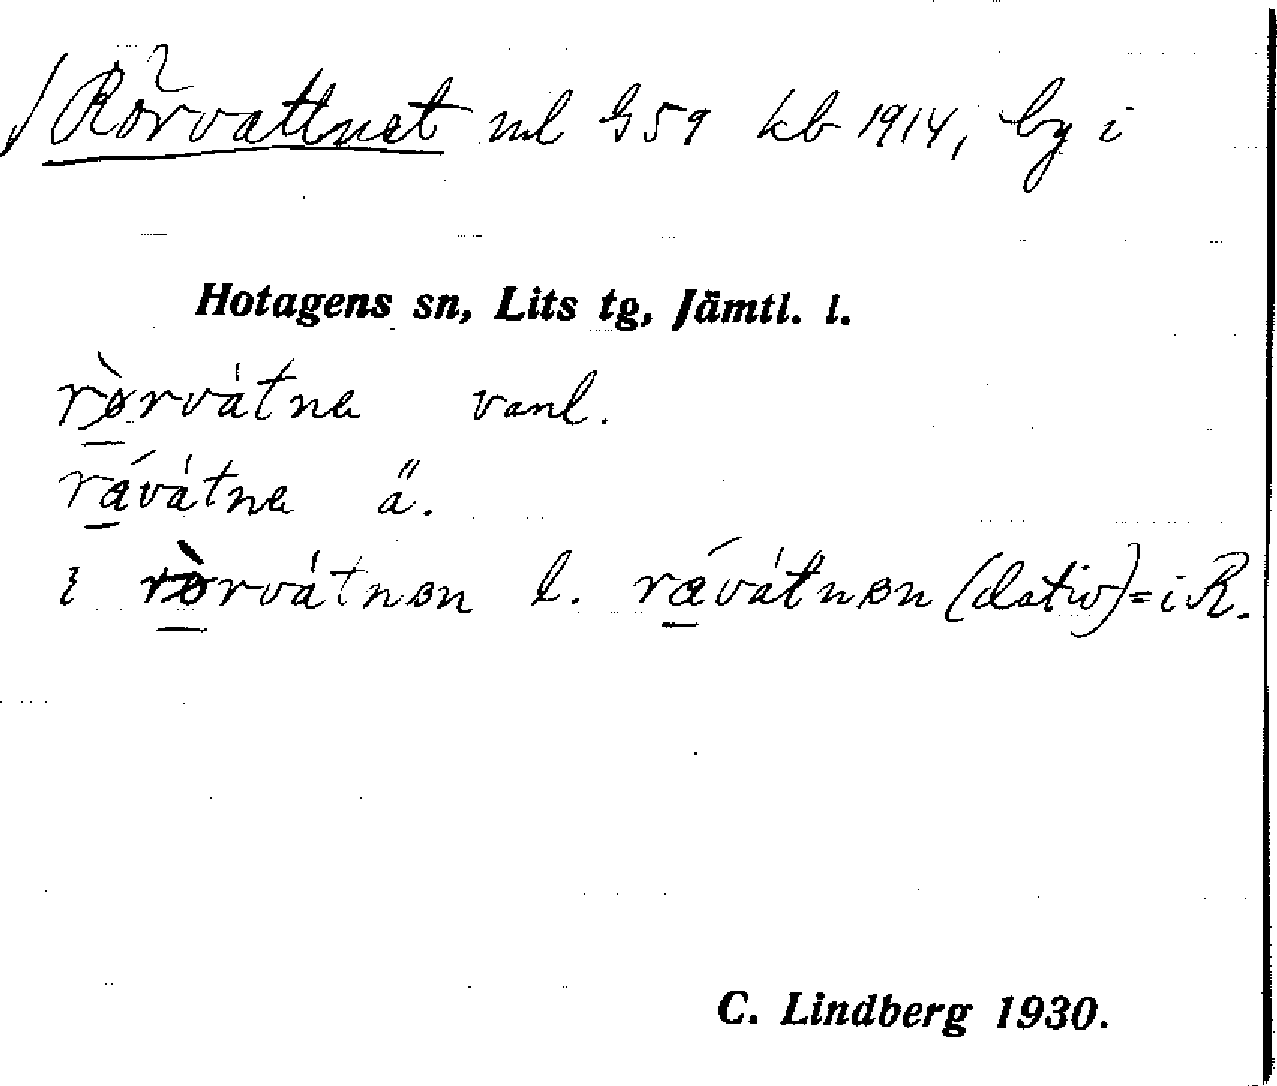 Rörvattnet ml G59 kb 1914, by i
Hotagens sn, Lits tg, Jämtl. l.
rø̀rvátna vanl.
rǽvátna ä.
i rø̀rvátnɞn l. rǽvátnɞn (dativ) = i R.
C. Lindberg 1930.